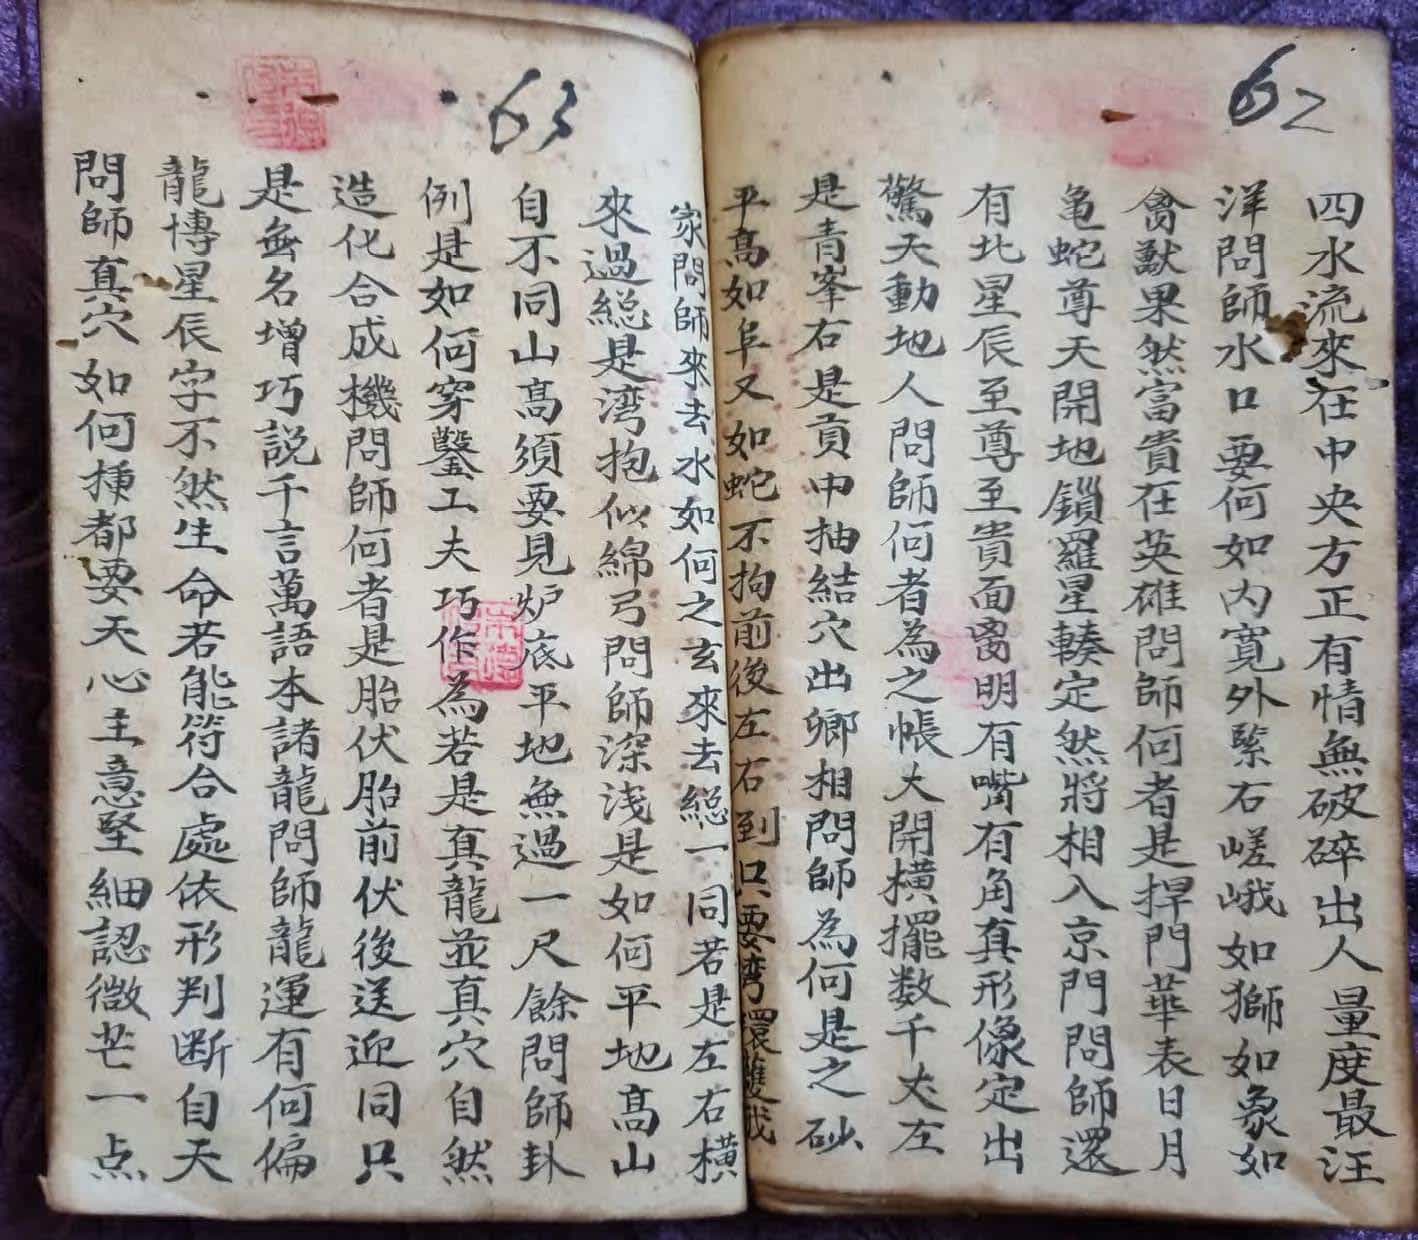 62
四水流來在中央方正有情無破碎出人量度最汪
洋問師水口要何如内寬外緊右嵯峨如獅如象如
禽獸果然富貴在英雄問師何者是捍門華表日月
龜蛇尊天開地鎖羅星輳定然將相入京門問師還
有北星辰至尊至貴面离明有嘴有角真形像定出
驚天動地人問師何者為之帳大開橫擺数千丈左
是青峯右是貢中抽結穴出卿相問師為何是之砂
平高如阜又如蛇不拘前後左右到只要湾環雙我
63
家問師來去水如何之玄來去総一同若是左右橫
來過総是湾抱似綿弓問師深浅是如何平地高山
自不同山高須要見炉底平地無過一尺餘問師卦
例是如何穿鑿工夫巧作為若是真龍並真穴自然
造化合成機問師何者是胎伏胎前伏後送迎同只
是無名增巧説千言萬語本諸龍問師龍運有何偏
龍博星辰字不然生命若能符合處依形判断自天
問師真穴如何揰都要天心主意堅細認微芒一点